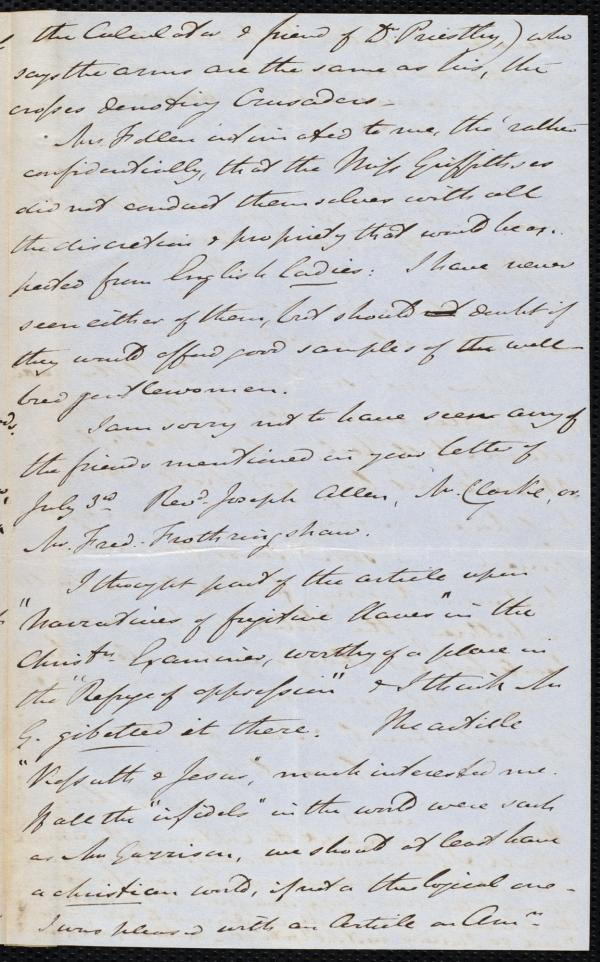 the Calculator & friend of Dr. Priestley,) who
says the arms are the same as his, the
crosses denoting Crusaders -
Mrs. Follen intimated to me, tho' rather
confidentially, that the Miss Griffiths's
did not conduct themselves with all
the discretion & propriety that would be ex-
pected from English ladies: I have never
seen either of them, but should doubt if
they would afford good samples of the well-
bred gentlewomen.
I am sorry not to have seen any of
the friends mentioned in your letter of
July 3rd. Revd. Joseph Allen, Mr. Clarke, or
Mr. Fred. Frothingham.
I thought part of the article upon
"Narratives of fugitive slaves" in the
Christn. Examiner, worthy of a place in
the "Refuge of oppression" & I think Mr
G. gibetted it there. The article
"Kossuth & Jesus", much interested me.
If all the "infidels" in the world were such
as Mr Garrison, we should at least have
a christian world, if not a theological one -
I was pleased with an Article on Amn.